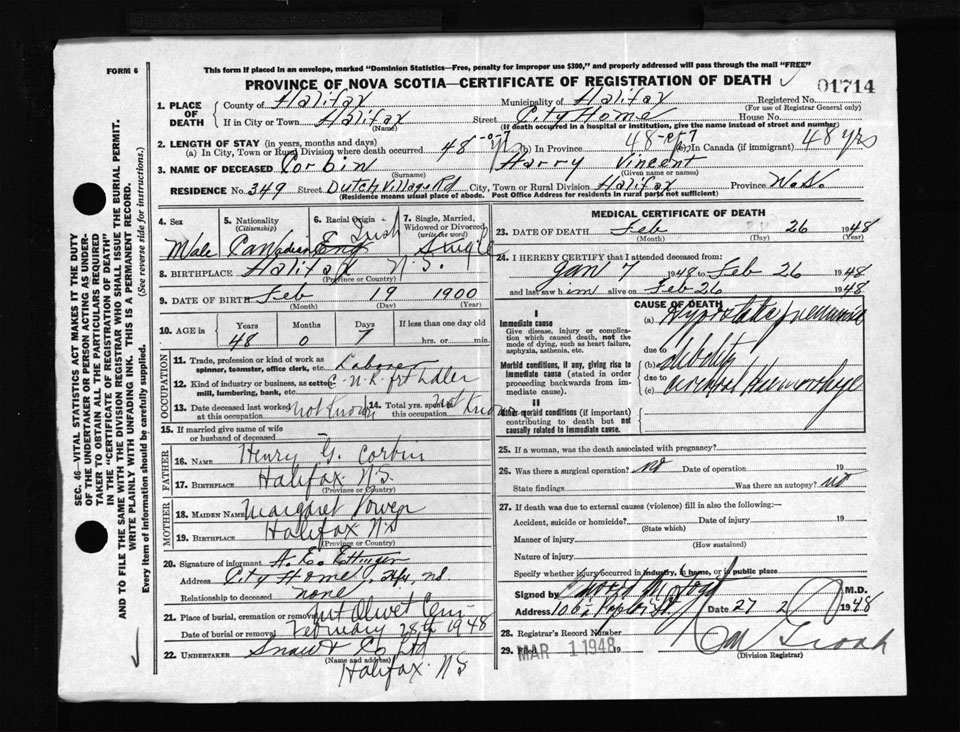 FORM 6
This form if placed in an envelope, marked "Dominion Statistics—Free, penalty for improper use $300," and properly addressed will pass through the mail "FREE"
PROVINCE OF NOVA SCOTIA—CERTIFICATE OF REGISTRATION OF DEATH
01714
1. PLACE OF DEATH
County of Halifax Municipality of Halifax Registered No.
(For use of Registrar General only)
If in City or Town Halifax Street City Home House No.
(Name) (If death occurred in a hospital or institution, give the name instead of street and number)
2. LENGTH OF STAY (in years, months and days)
(a) In City, Town or Rural Division where death occurred 48-0-7 (b) In Province 48-0-7 (c) In Canada (if immigrant) 48 yrs
3. NAME OF DECEASED Corbin Harry Vincent
(Surname) (Given name or names)
RESIDENCE No. 349 Street Dutch Village Rd City, Town or Rural Division Halifax Province N.S.
(Residence means usual place of abode. Post Office Address for residents in rural parts not sufficient)
4. Sex Male
5. Nationality (Citizenship) Canadian
6. Racial Origin Irish Eng
7. Single, Married, Widowed or Divorced (write the word) Single
8. BIRTHPLACE Halifax N.S.
(Province or Country)
9. DATE OF BIRTH Feb 19 1900
(Month) (Day) (Year)
10. AGE in Years Months Days If less than one day old
48 0 7 hrs. or min.
OCCUPATION
11. Trade, profession or kind of work as spinner, teamster, office clerk, etc. Laborer
12. Kind of industry or business, as cotton mill, lumbering, bank, etc. C.N.R. frt
13. Date deceased last worked at this occupation Not Known
14. Total yrs. spent in this occupation Not Known
15. If married give name of wife or husband of deceased
FATHER
16. NAME Henry G. Corbin
17. BIRTHPLACE Halifax N.S.
(Province or Country)
MOTHER
18. MAIDEN NAME Margaret Power
19. BIRTHPLACE Halifax N.S
(Province or Country)
20. Signature of informant A. E. Ettinger
Address City Home,
Relationship to deceased none
21. Place of burial, cremation or removal Mt Olivet Cem
Date of burial or removal February 28th 1948
22. UNDERTAKER Snow & Co Ltd
(Name and address)
Halifax N.S
MEDICAL CERTIFICATE OF DEATH
23. DATE OF DEATH Feb 26 1948
(Month) (Day) (Year)
24. I HEREBY CERTIFY that I attended deceased from:
Jan 7 1948 to Feb 26 1948
and last saw him alive on Feb 26 1948
CAUSE OF DEATH
I
Immediate cause
Give disease, injury or complication which caused death, not the mode of dying, such as heart failure, asphyxia, asthenia, etc.
(a) Hypostatic pneumonia
due to
Morbid conditions, if any, giving rise to immediate cause (stated in order proceeding backwards from immediate cause).
(b) debility
due to
(c) Hemorrhage
II
Other morbid conditions (if important) contributing to death but not causally related to immediate cause.
25. If a woman, was the death associated with pregnancy?
26. Was there a surgical operation? no Date of operation 19
State findings Was there an autopsy? no
27. If death was due to external causes (violence) fill in also the following:—
Accident, suicide or homicide? Date of injury 19
(State which)
Manner of injury
(How sustained)
Nature of injury
Specify whether injury occurred in industry, in home, or in public place
Signed by M.D.
Address Date 27 2 1948
28. Registrar's Record Number
29. Filed MAR 1 1948 19
(Division Registrar)
SEC. 46—VITAL STATISTICS ACT MAKES IT THE DUTY OF THE UNDERTAKER OR PERSON ACTING AS UNDERTAKER TO OBTAIN ALL THE PARTICULARS REQUIRED IN THE "CERTIFICATE OF REGISTRATION OF DEATH" AND TO FILE THE SAME WITH THE DIVISION REGISTRAR WHO SHALL ISSUE THE BURIAL PERMIT.
WRITE PLAINLY WITH UNFADING INK. THIS IS A PERMANENT RECORD.
Every item of information should be carefully supplied. (See reverse side for instructions.)